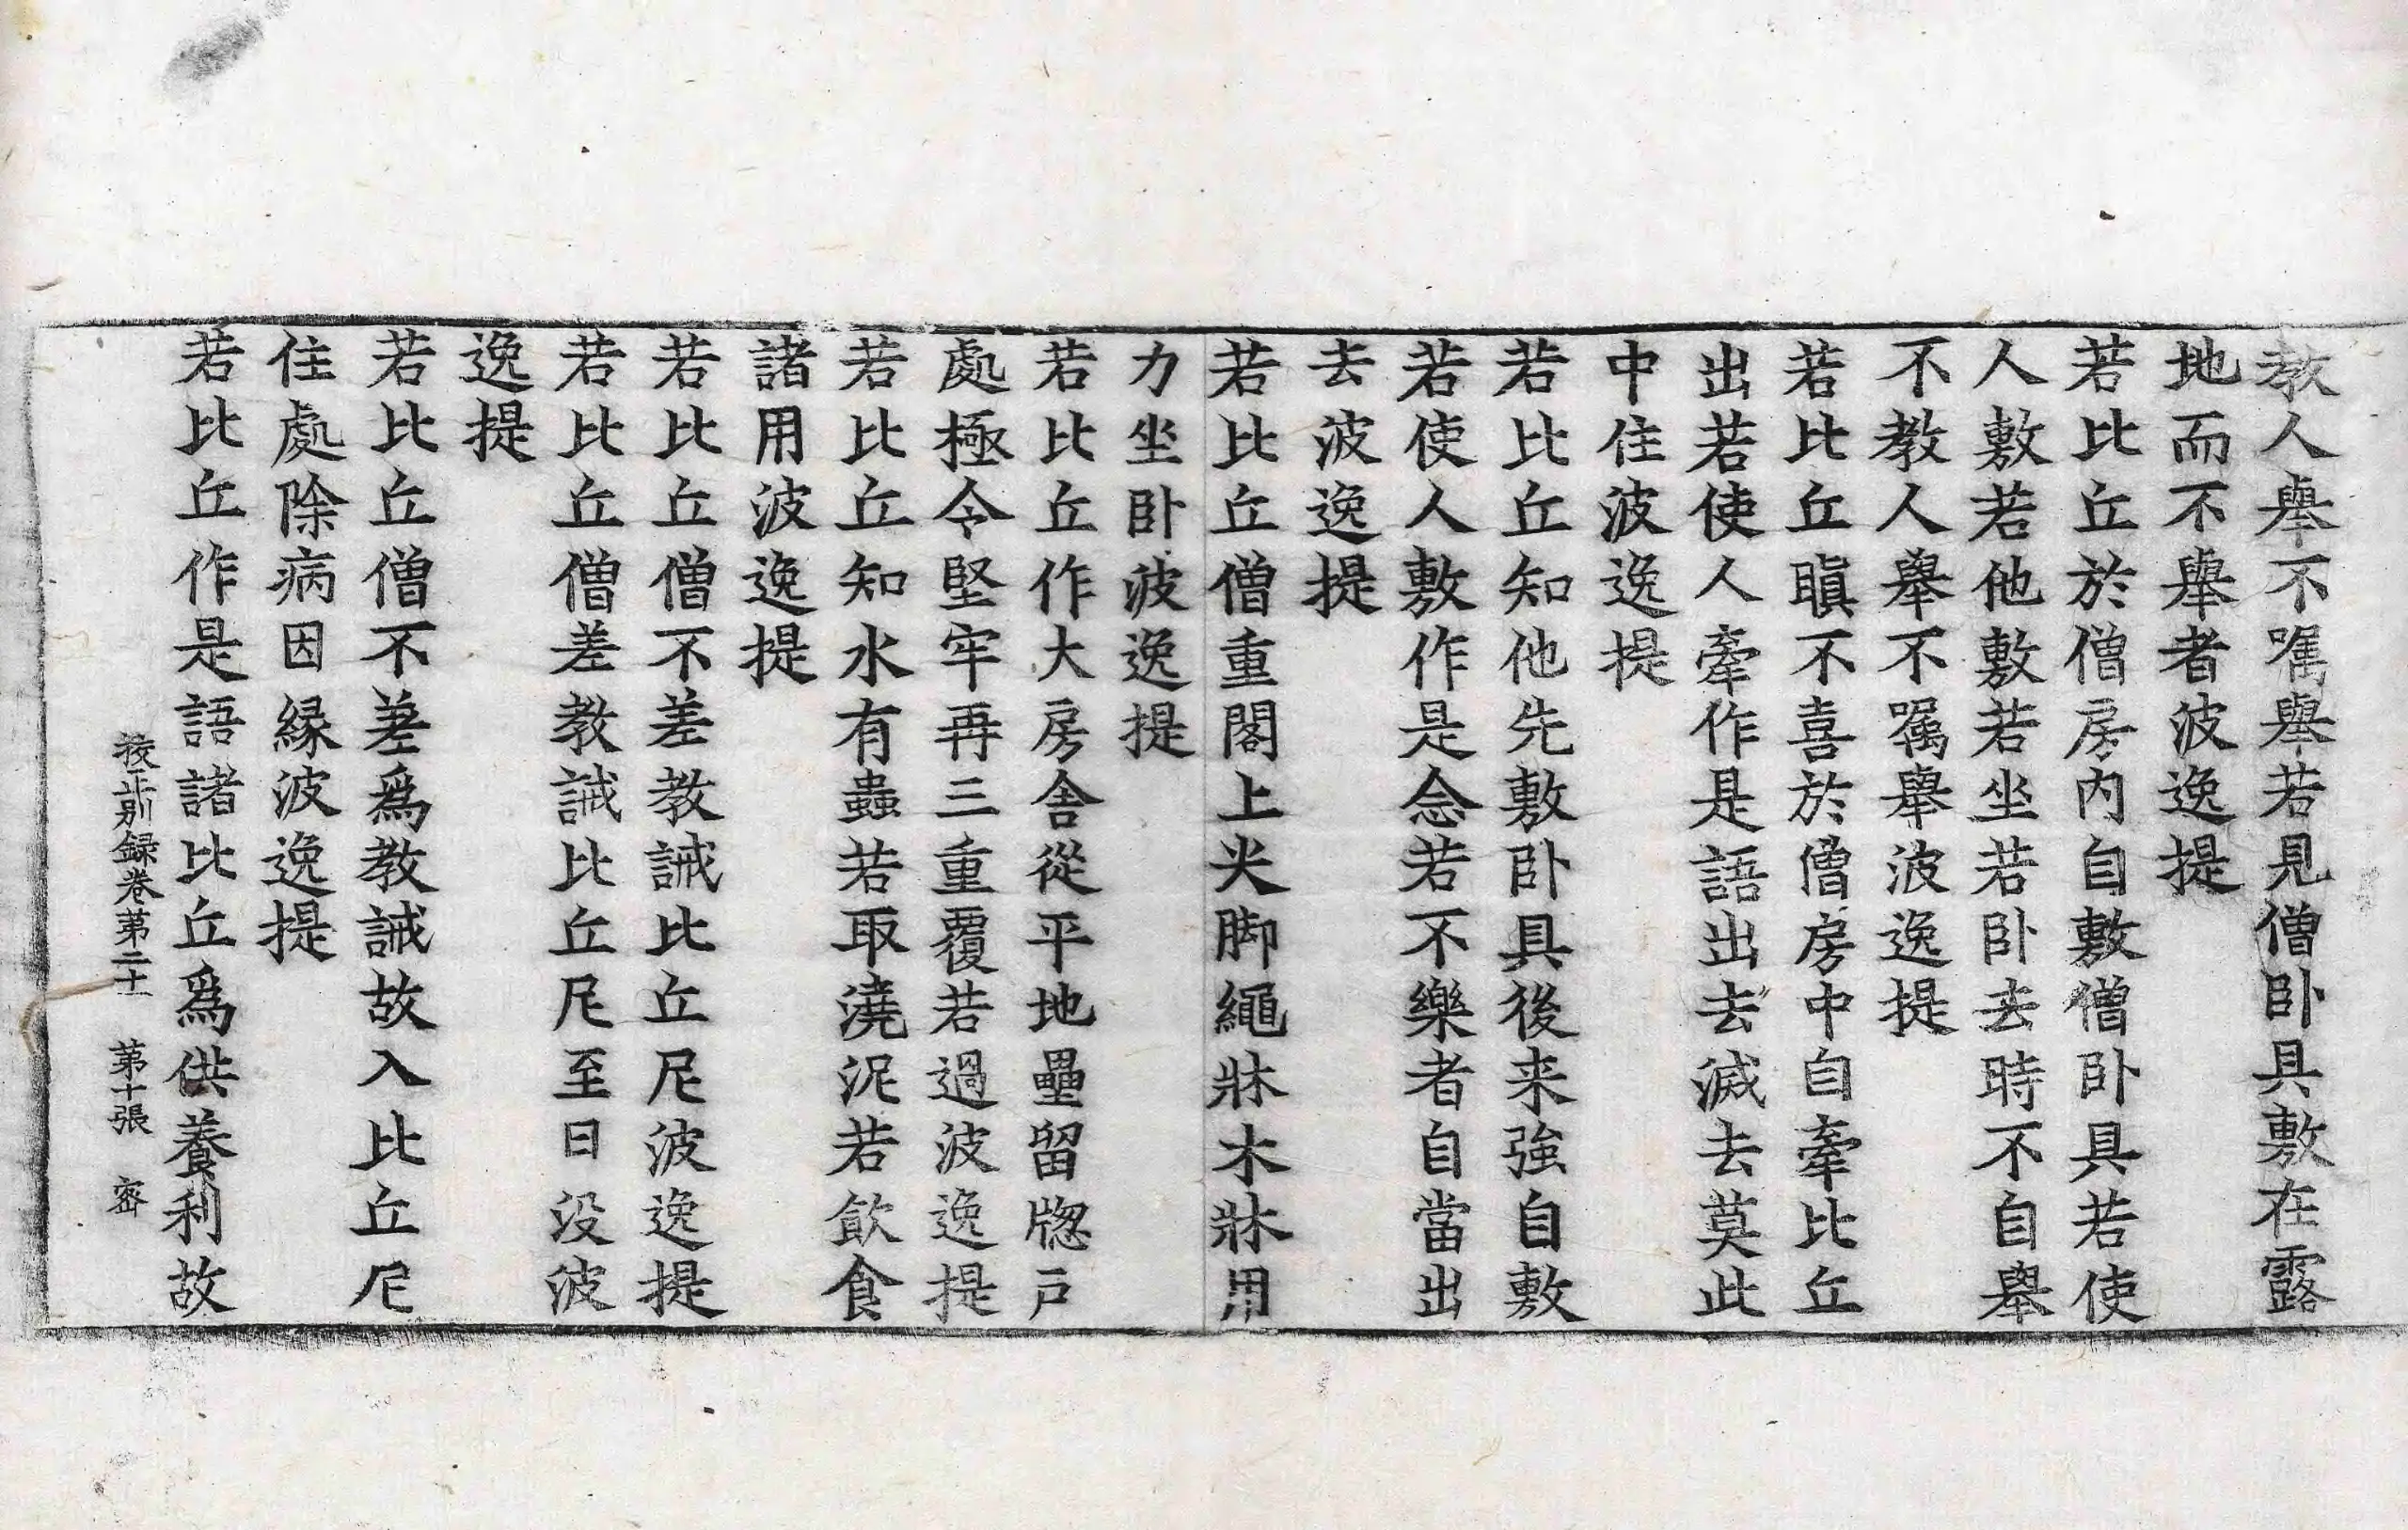 教人舉不囑舉若見僧卧具敷在露
地而不舉者波逸提
若比丘於僧房内自敷僧卧具若使
人敷若他敷若坐若卧去時不自舉
不教人舉不囑舉波逸提
若比丘瞋不喜於僧房中自牽比丘
出若使人牽作是語出去滅去莫此
中住波逸提
若比丘知他先敷卧具後来強自敷
若使人敷作是念若不樂者自當出
去波逸提
若比丘僧重閣上尖脚繩牀木牀用
力坐卧波逸提
若比丘作大房舎從平地壘留牎户
處極令堅牢再三重覆若過波逸提
若比丘知水有蟲若取澆泥若飲食
諸用波逸提
若比丘僧不差教誡比丘尼波逸提
若比丘僧差教誡比丘尼至日没波
逸提
若比丘僧不差爲教誡故入比丘尼
住處除病因緣波逸提
若比丘作是語諸比丘爲供養利故
挍正别録卷第二十一 第十張 宻